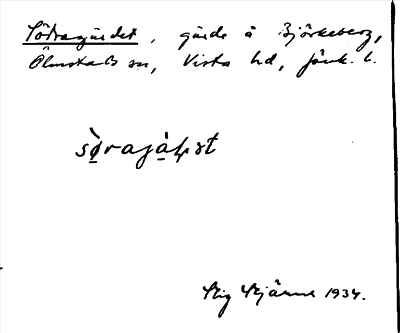 Södragärdet, gärde å Björkeberg,
Ölmstads sn, Vista hd, Jönk. l.
Stig Stjärne 1934.